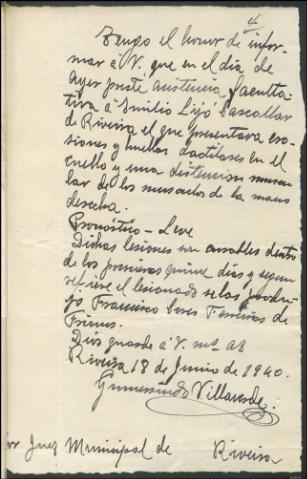 Tengo el honor de infor-
mar á V. que en el día de
ayer presté asistencia faculta-
tiva á Emilio Lijó Cascallar
de Riveira el que presentaba ero-
siones y huellas dactilares en el
cuello y una distension muscu-
lar de los musculos de la mano
derecha.
Pronóstico - Leve
Dichas lesiones son curables dentro
de los primeros quince días y segun
refiere el lesionado se las produ-
jo Francisco de
Frions.
Dios guarde á V. ms as
Riveira 18 de Junio de 1940.
Gumersindo Villaverde.
or Juez Municipal de Riveira